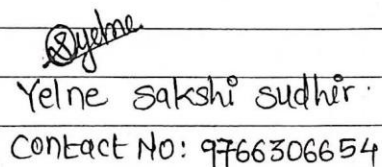 Syelne
Yelne Sakshi Sudhir.
Contact No: 9766306654